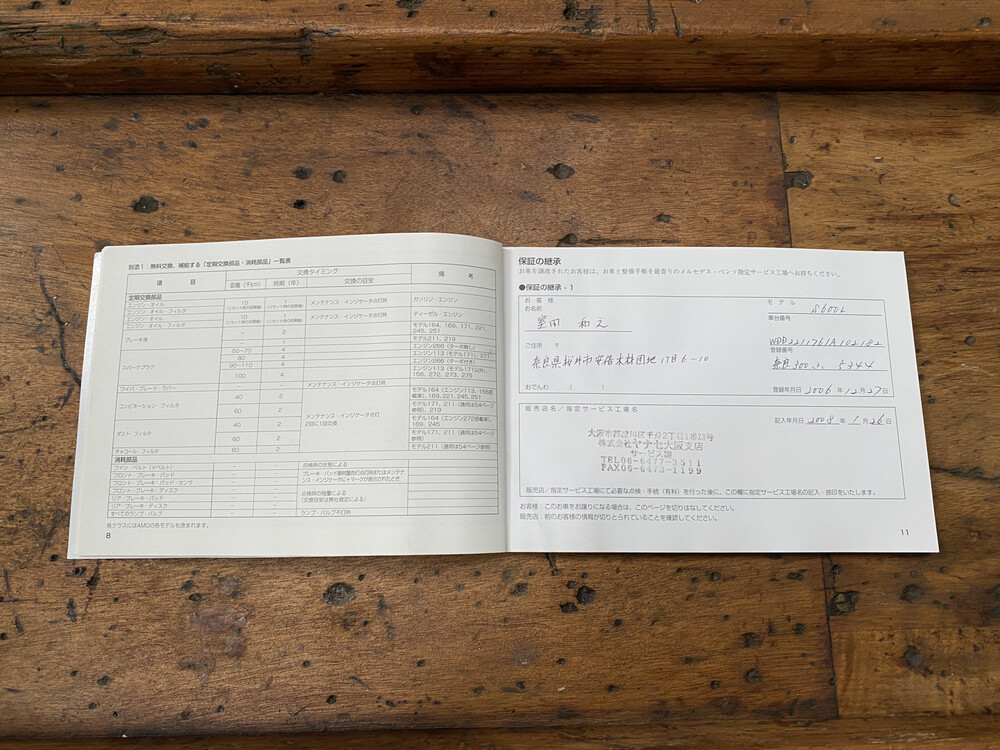 別添1：無料交換、補給する「定期交換部品・消耗部品」一覧表
項 目 交換タイミング 備 考
距離（千km） 時期（年） 交換の目安
定期交換部品
エンジン・オイル 15 1 メンテナンス・インジケータ点灯時 ガソリン・エンジン
エンジン・オイル・フィルタ
エンジン・オイル 10 1 メンテナンス・インジケータ点灯時 ディーゼル・エンジン
エンジン・オイル・フィルタ
ブレーキ液 － 2 モデル164, 169, 171, 221, 245, 251
－ 1 モデル211, 219
スパークプラグ 50~70 4 エンジン266（ターボ無し）
80 4 エンジン113（モデル171）, 271
90~110 4 エンジン266（ターボ付き）
100 4 エンジン113（モデル171以外）, 156, 272, 273, 275
ワイパ・ブレード・ラバー － － メンテナンス・インジケータ点灯時
コンビネーション・フィルタ 40 2 メンテナンス・インジケータ点灯2回に1回交換
60 2 モデル171, 211（適用は54ページ参照）, 219
ダスト・フィルタ 40 2 モデル164（エンジン272搭載車）, 169, 245
60 2 モデル171, 211（適用は54ページ参照）
チャコール・フィルタ 60 2 モデル211（適用は54ページ参照）
消耗部品
ファン・ベルト（Vベルト） － － 点検時の状態による
フロント・ブレーキ・パッド － －
フロント・ブレーキ・パッド・センサ － －
フロント・ブレーキ・ディスク － － 点検時の残量による
リア・ブレーキ・パッド － － （交換目安は弊社規定による）
リア・ブレーキ・ディスク － －
すべてのランプ・バルブ － － ランプ・バルブ不灯時
各クラスにはAMGの各モデルも含まれます。
8
保証の継承
お車を譲渡されたお客様は、お車と整備手帳を最寄りのメルセデス・ベンツ指定サービス工場へお持ちください。
●保証の継承 - 1
お 客 様
お名前
室田 和之
ご住所 〒
奈良県桜井市安倍木材団地1丁目6-10
おでんわ （ ）
モ デ ル
S600L
車台番号
WDD2211761A102182
登録番号
奈良 300 5344
登録年月日 2006 年 12 月 27 日
販 売 店 名 ／ 指 定 サ ー ビ ス 工 場 名
記入年月日 2008 年 1 月 26 日
大阪市淀川区千舟2丁目1番23号
株式会社ヤナセ大阪支店
サービス課
TEL06-6477-3511
FAX06-6473-1199
販売店／指定サービス工場にて必要な点検・手続（有料）を行った後に、この欄に指定サービス工場名の記入・捺印をいたします。
お客様：このお車をお譲りになる場合は、このページを切りはなしてください。
販売店：前のお客様の情報が切りとられていることを確認してください。
11